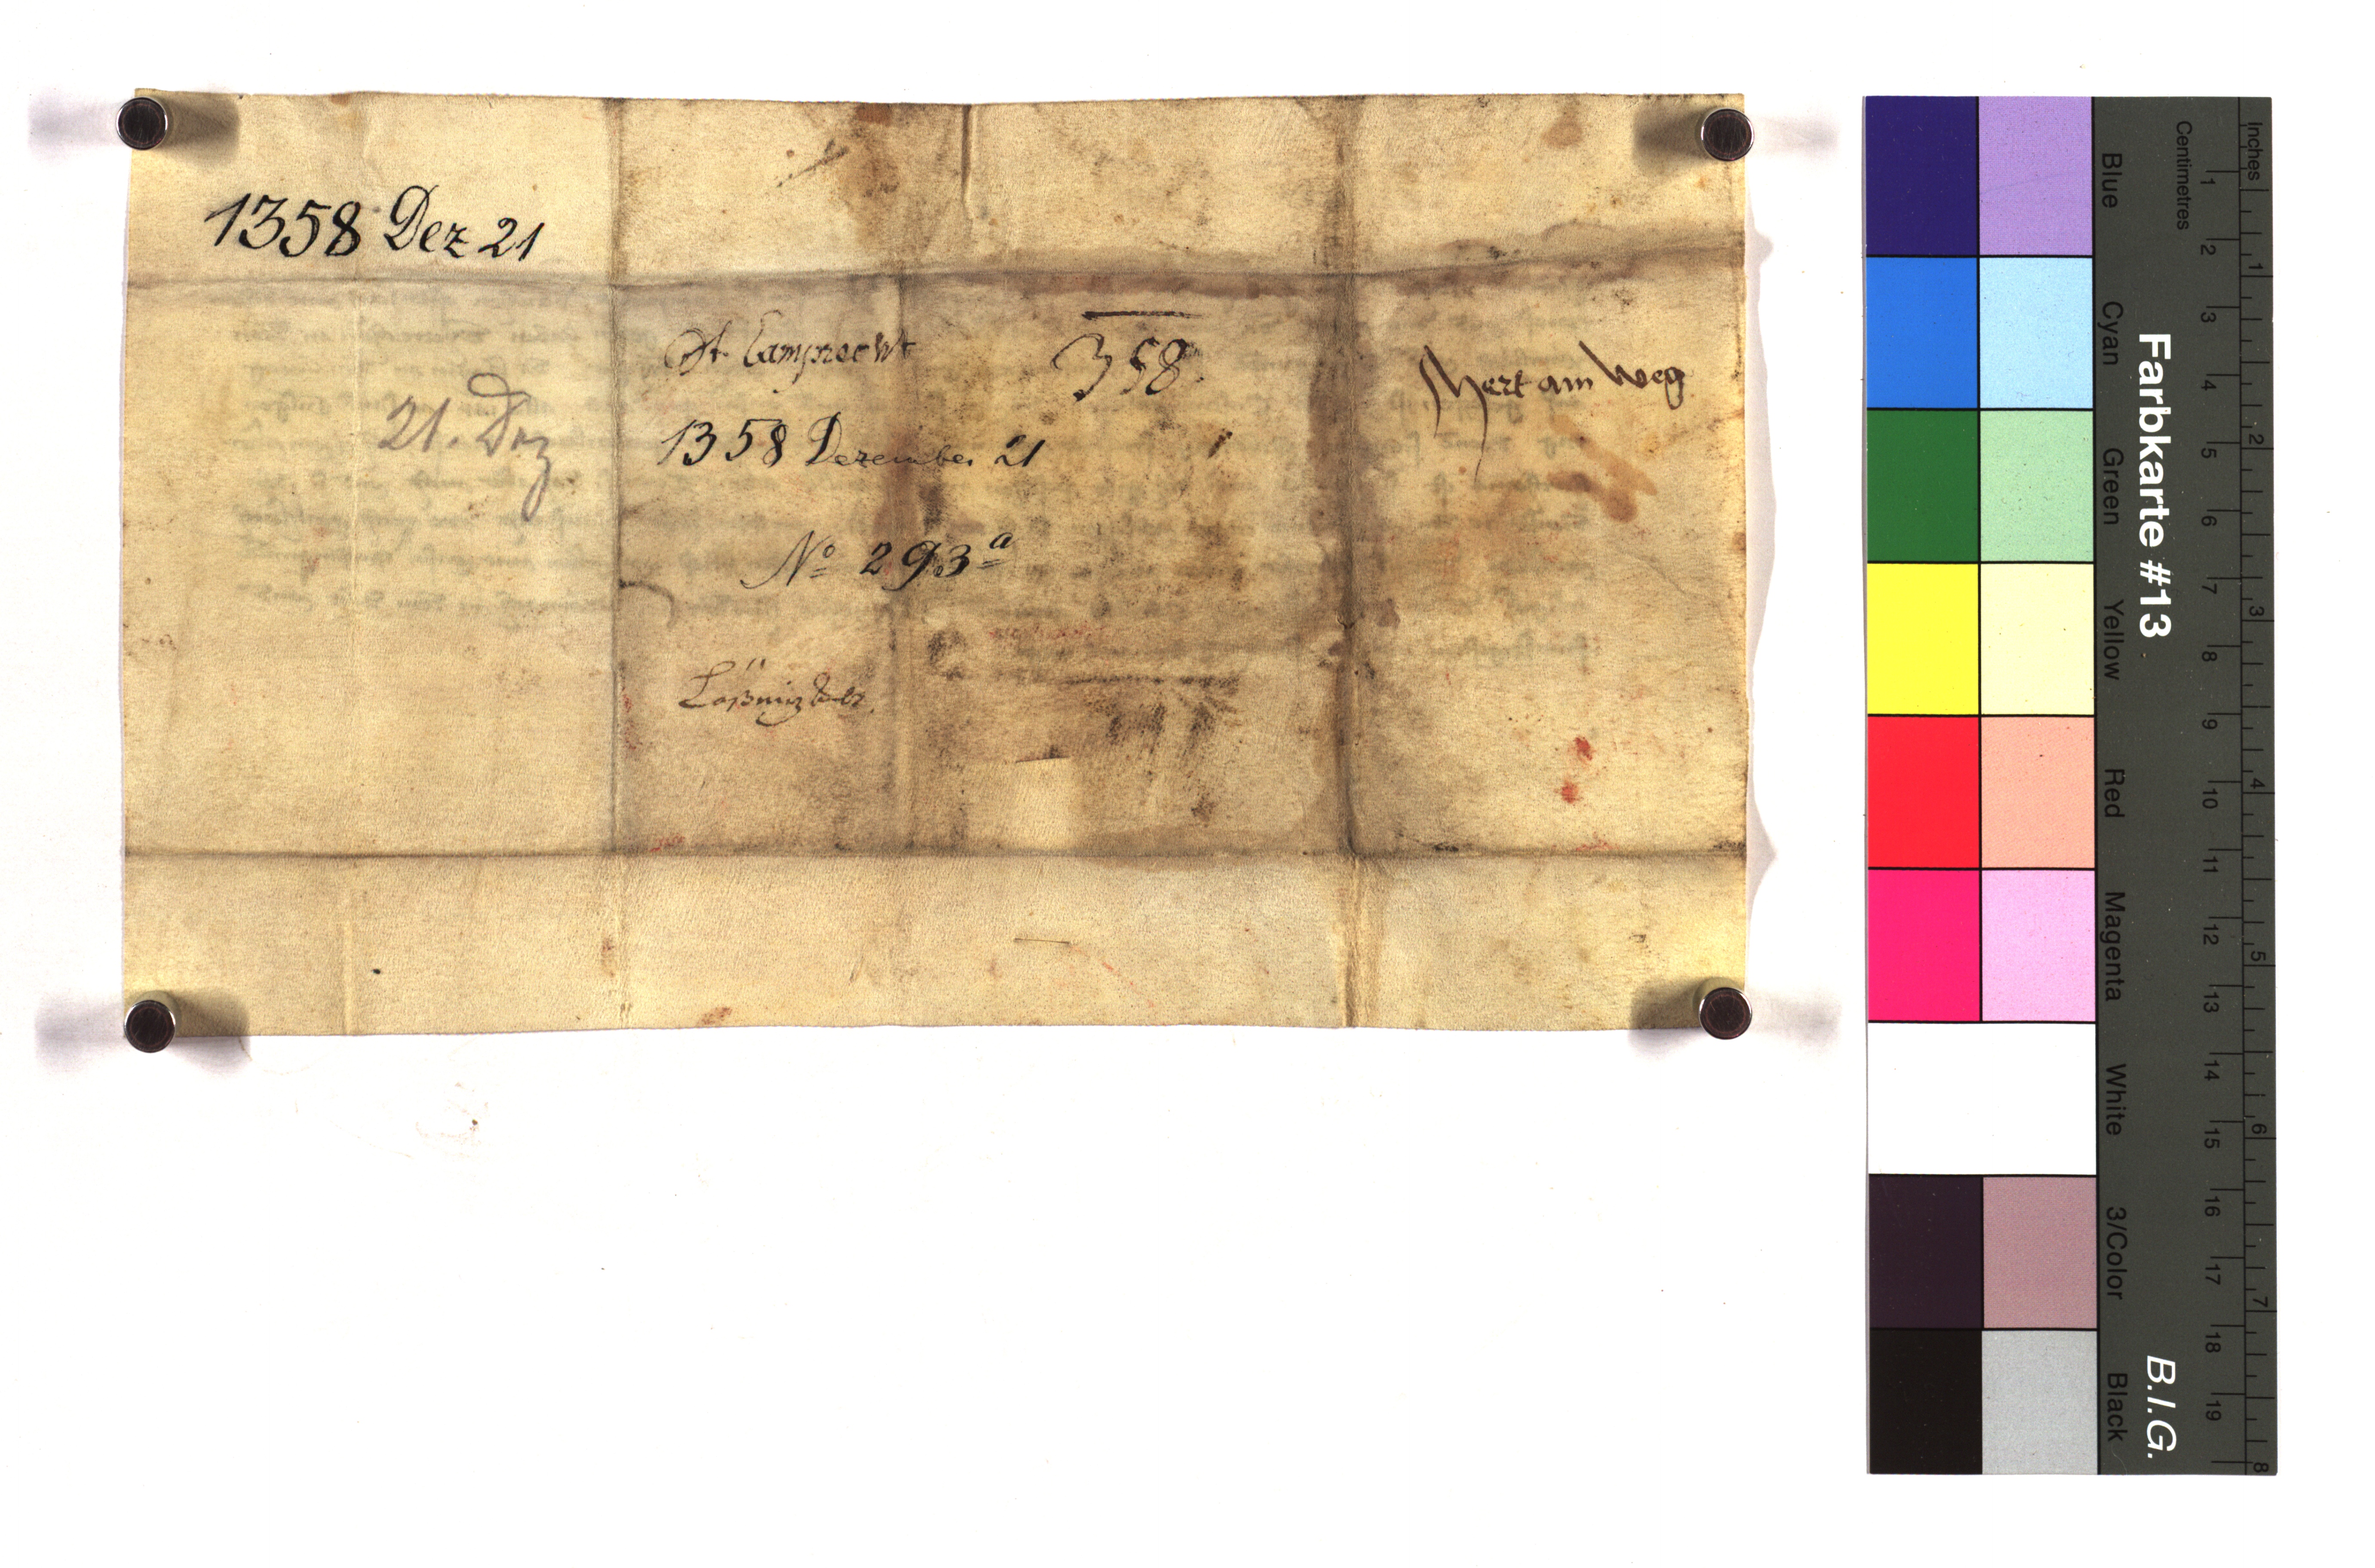 1358 Dez 21
St. Lamprecht
358.
Mert am Weg
21. Dez
1358 Dezember 21
No 293a
Inches
Centimetres
1 2 3 4 5 6 7 8 9 10 11 12 13 14 15 16 17 18 19
1 2 3 4 5 6 7 8
Farbkarte #13
B.I.G.
Blue Cyan Green Yellow Red Magenta White 3/Color Black